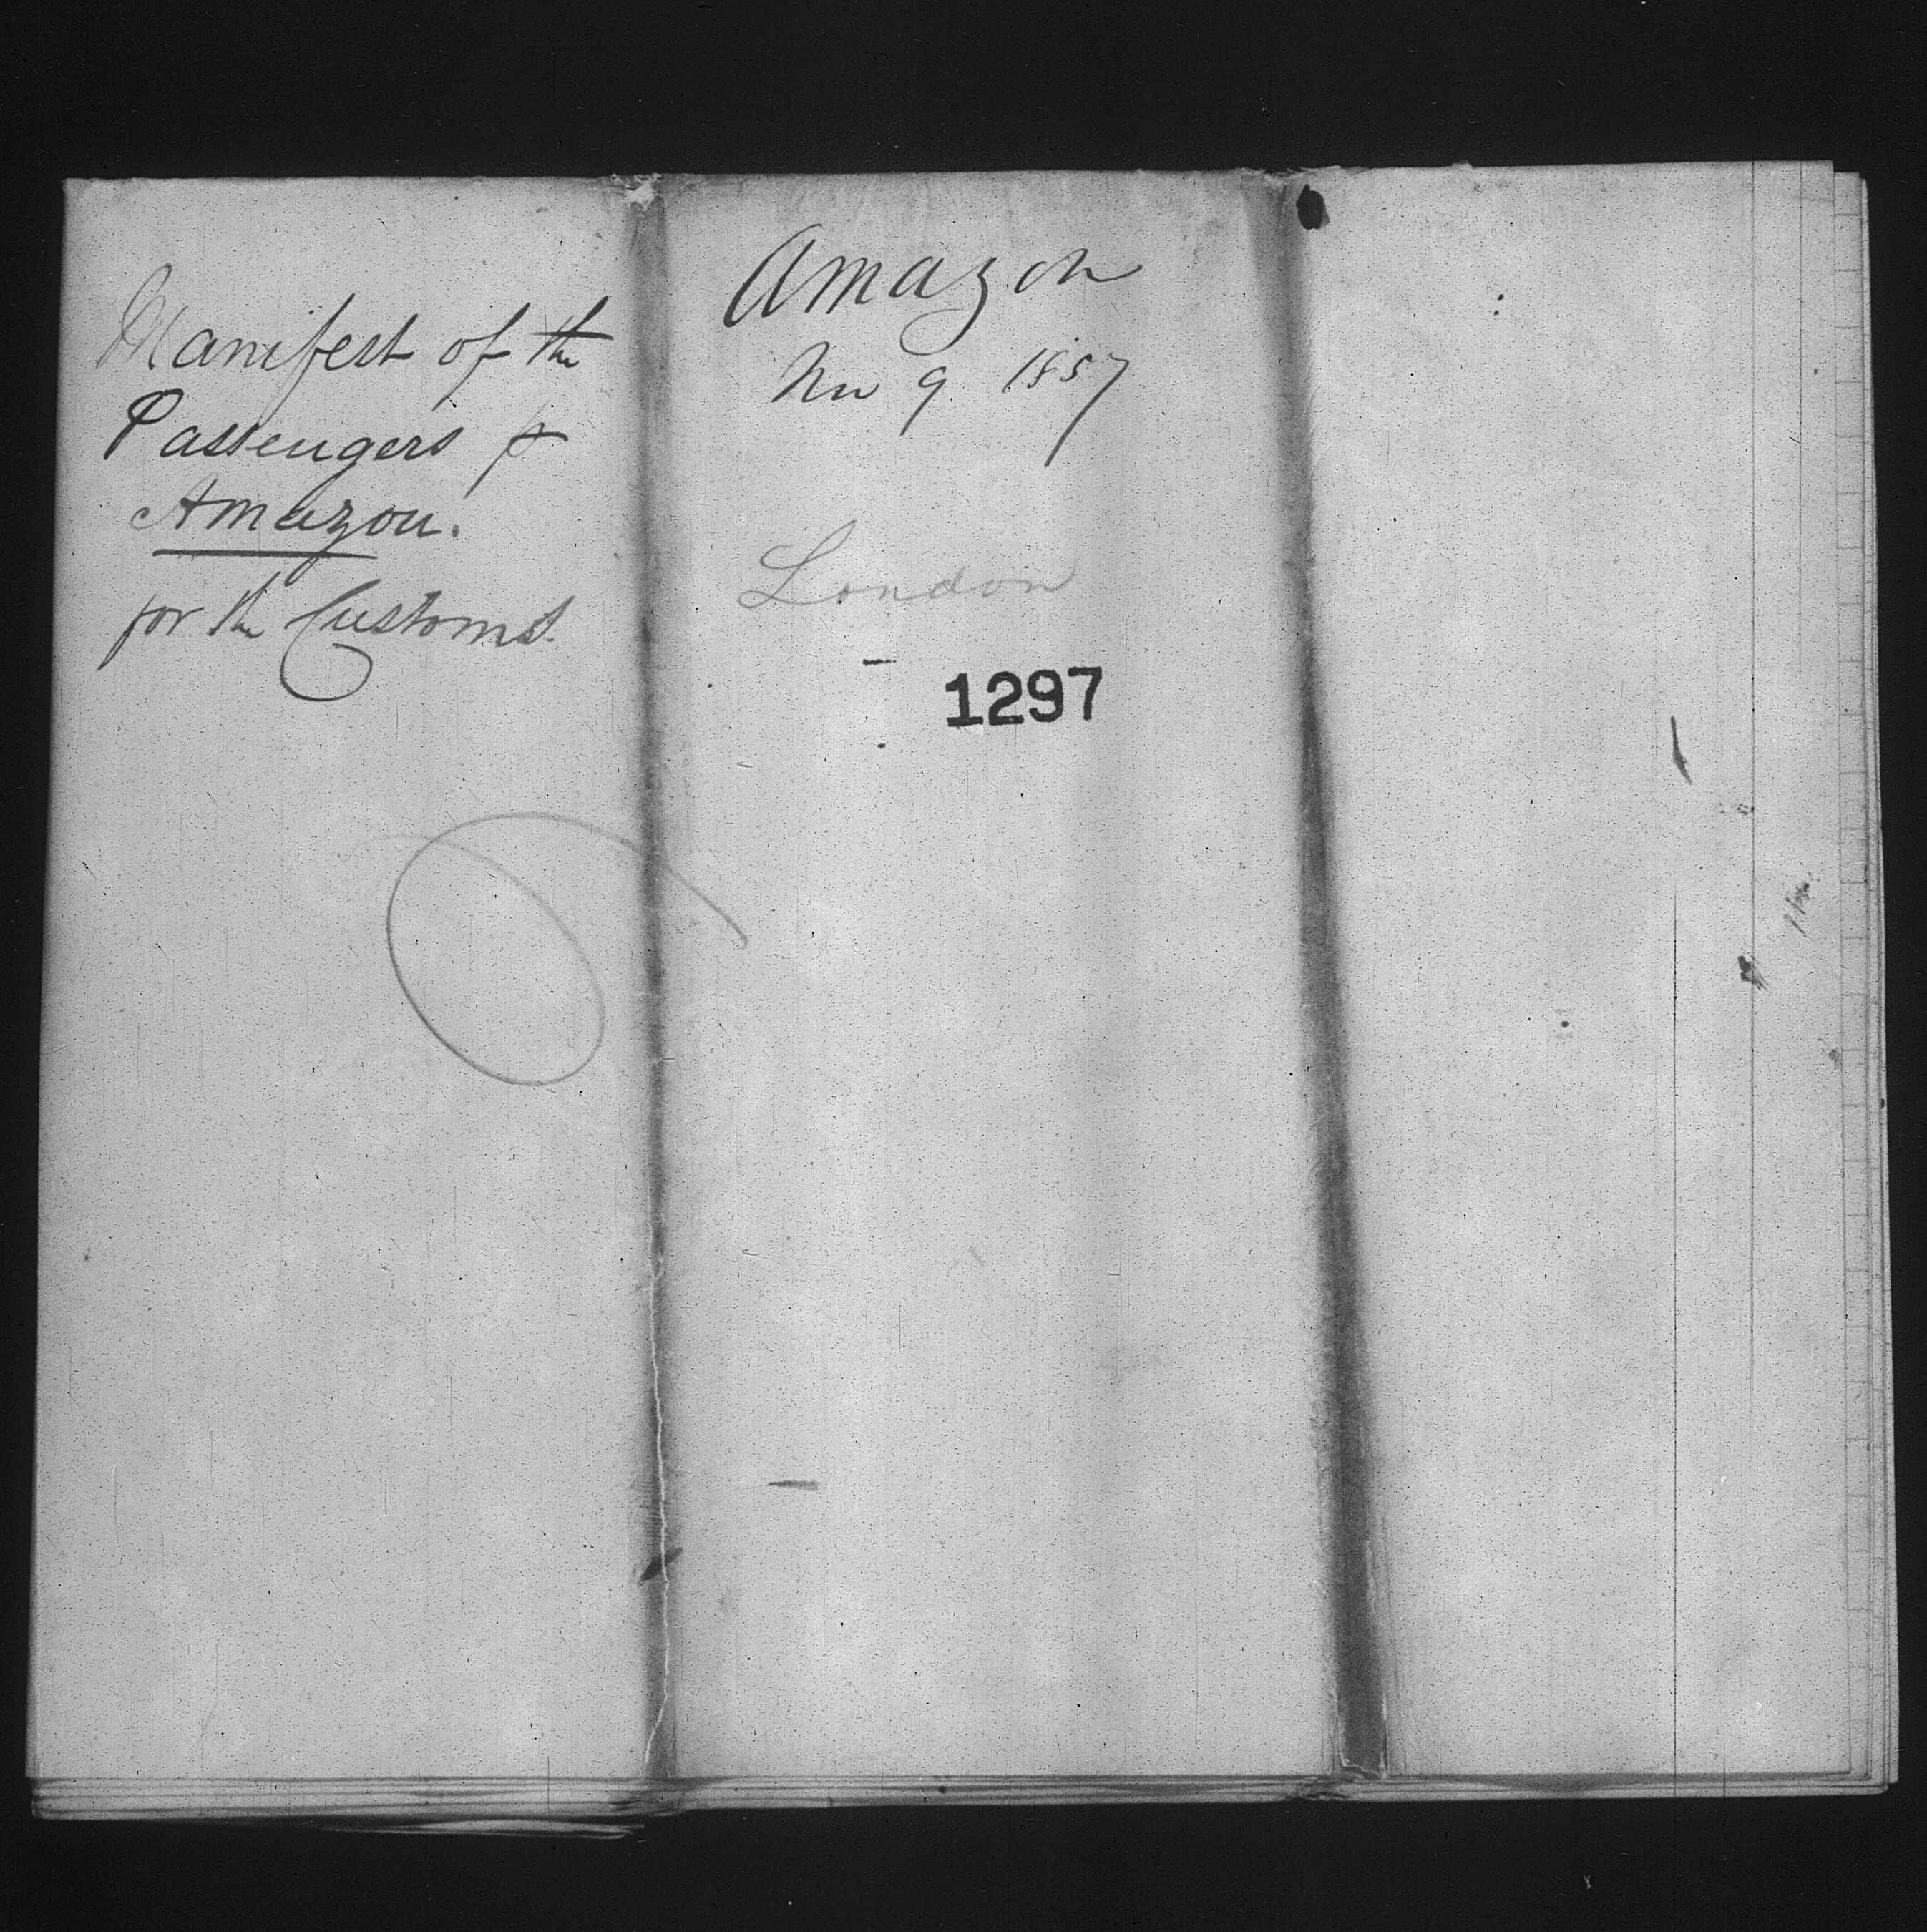 Manifest of the
Passengers p
Amazon.
for the Customs.
Amazon
Nov 9 1857
London
1297